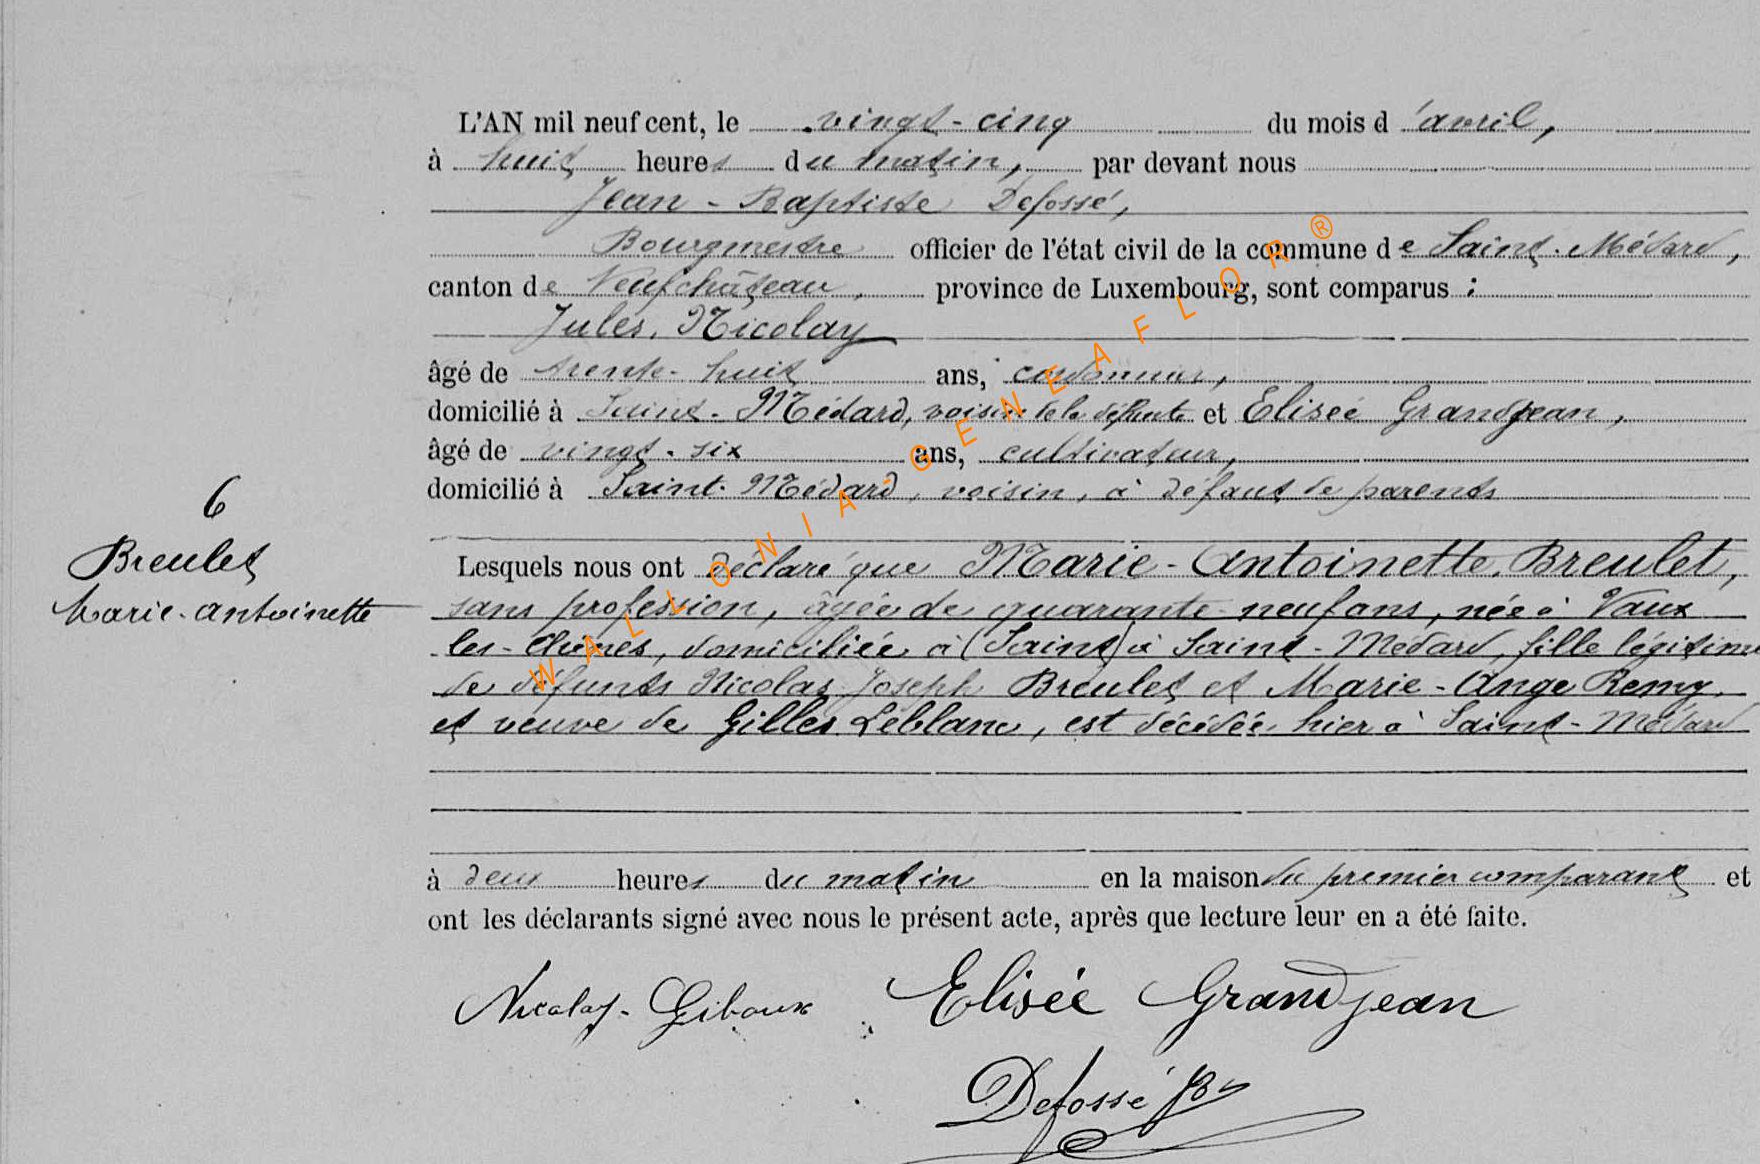 L'AN mil neuf cent, le vingt-cinq du mois d'avril,
à huit heures du matin, par devant nous
Jean-Baptiste Defossé,
Bourgmestre officier de l'état civil de la commune de Saint-Médard,
canton de Neufchâteau, province de Luxembourg, sont comparus :
Jules Nicolay
âgé de trente-huit ans, cordonnier,
domicilié à Saint-Médard, voisin de la défunte et Elisée Grandjean,
âgé de vingt-six ans, cultivateur,
domicilié à Saint-Médard, voisin, à défaut de parents
6
Breulet
Marie-Antoinette
Lesquels nous ont déclaré que Marie-Antoinette Breulet,
sans profession, âgée de quarante-neuf ans, née à Vaux
les-Chênes, domiciliée à (Saint) à Saint-Médard, fille légitime
de défunts Nicolas Joseph Breulet et Marie-Ange Remy,
et veuve de Gilles Leblanc, est décédée hier à Saint-Médard
à deux heures du matin en la maison du premier comparant et
ont les déclarants signé avec nous le présent acte, après que lecture leur en a été faite.
Nicolay-Giboux Elisée Grandjean
Defossé JBte
WALLONIA-GENEAFLOR®